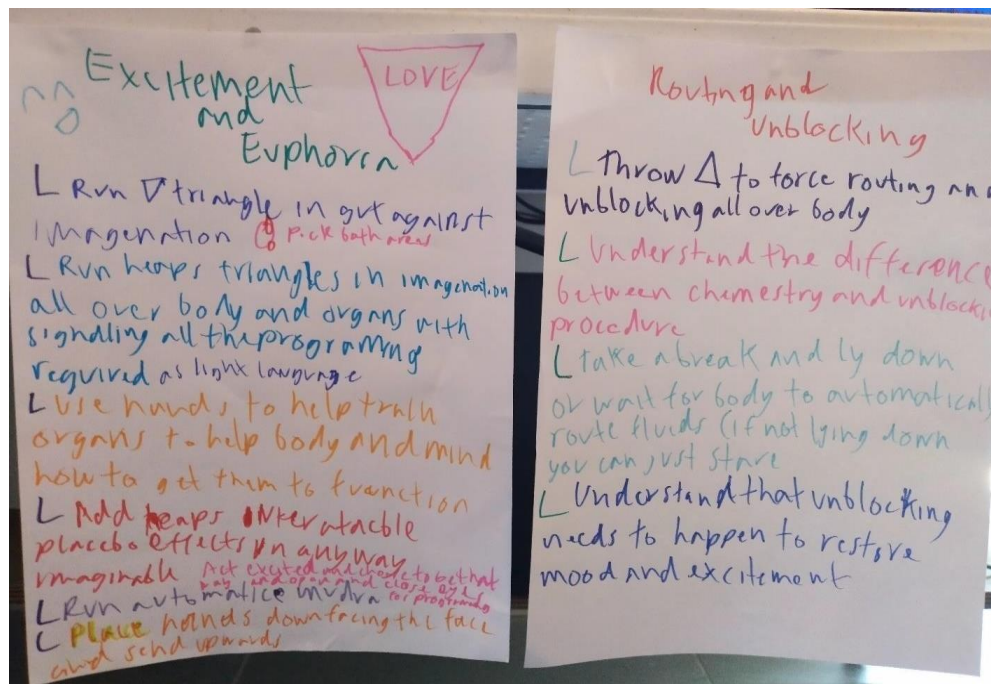 Excitement
and
Euphoria
LOVE
L Run ▽ triangle in gut against
imagenation pick both areas
L Run heaps triangles in imagenation
all over body and organs with
signalling all the programing
required as light language
L use hands to help train
organs to help body and mind
how to get them to function
L Add heaps
placebo effects in any way
imaginable Act excited and choose to be that
way and open and close eyes
for programing
L Run automatice mudra
L Place hands down facing the face
and send upwards
Routing and
Unblocking
L Throw △ to force routing an
unblocking all over body
L Understand the difference
between chemestry and unblocki
procedure
L take a break and ly down
or wait for body to automaticall
route fluids (if not lying down
you can just stare
L Understand that unblocking
needs to happen to restore
mood and excitement